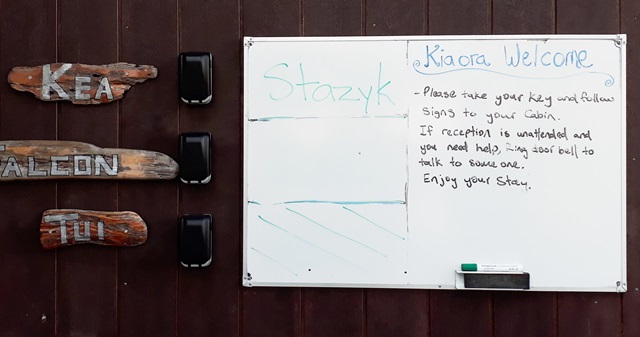 KEA
FALCON
TUI
Stazyk
Kiaora Welcome
- Please take your key and follow
signs to your cabin.
If reception is unattended and
you need help, ring door bell to
talk to someone.
Enjoy your stay.